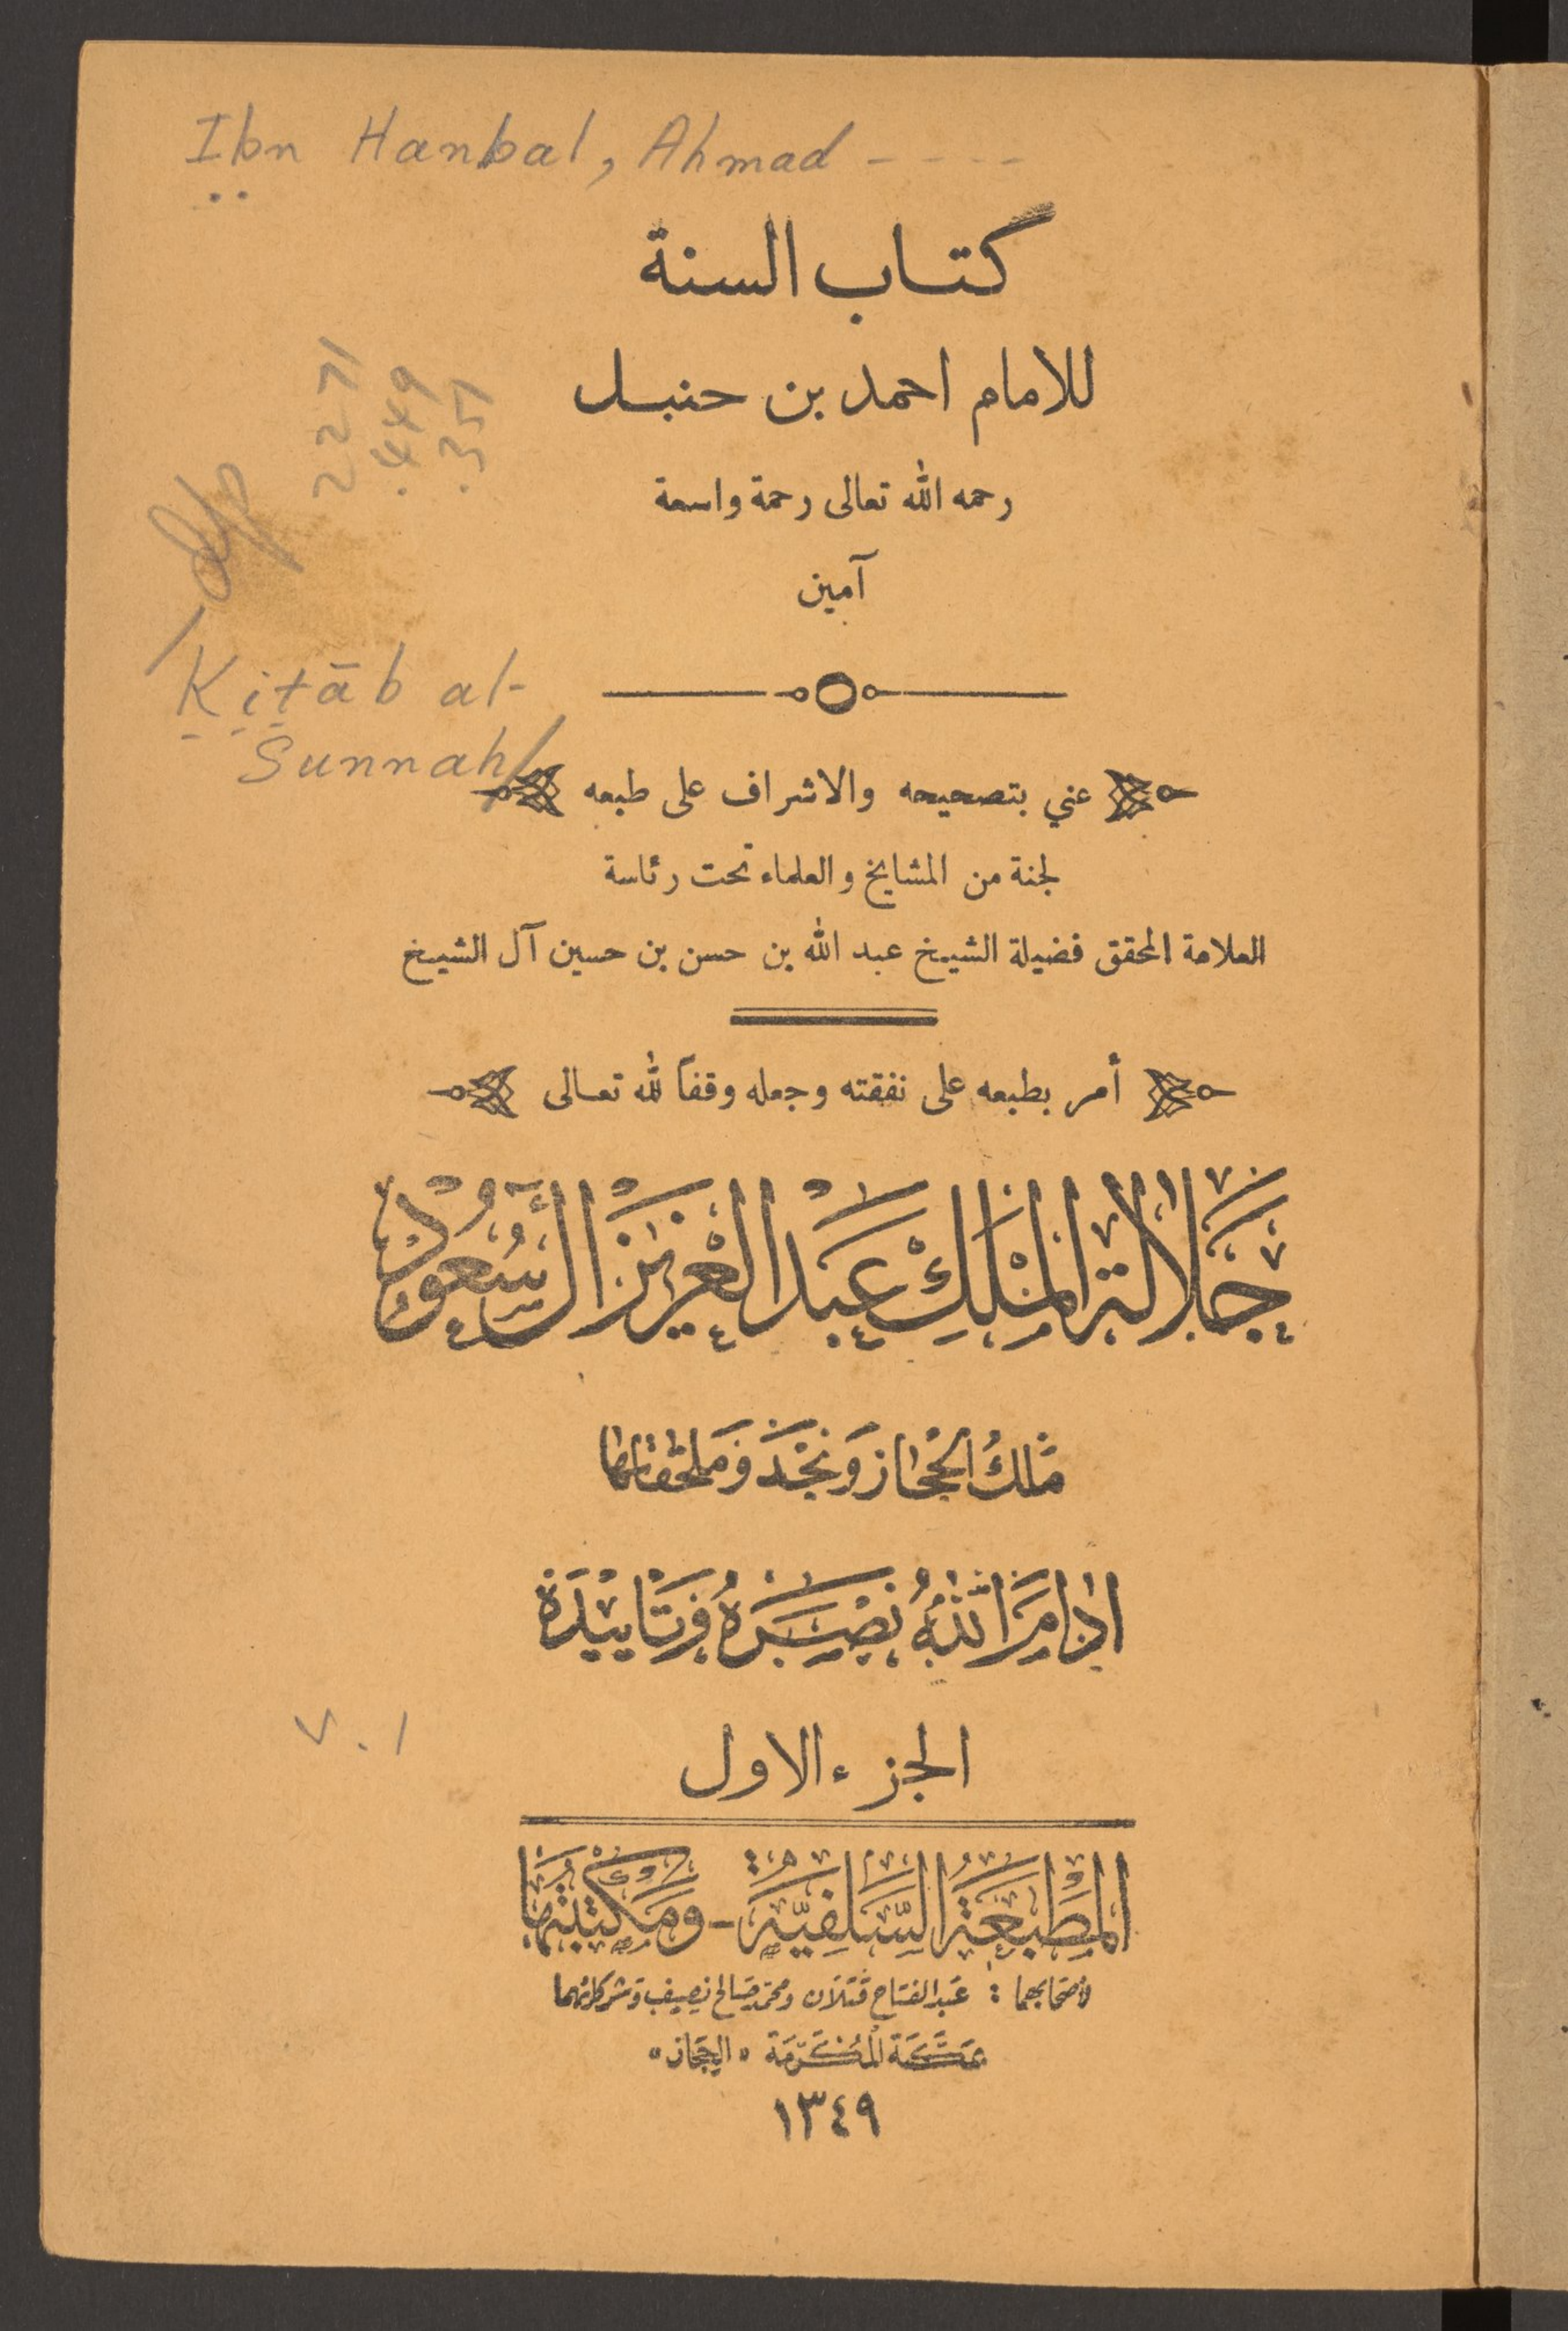 Ibn Hanbal, Ahmad - - - -
كتاب السنة
للامام احمد بن حنبل
رحمه الله تعالى رحمة واسعة
آمين
2271
.449
.351
Kitāb al-
Sunnah/
عني بتصحيحه والاشراف على طبعه
لجنة من المشايخ والعلماء تحت رئاسة
العلامة المحقق فضيلة الشيخ عبد الله بن حسن بن حسين آل الشيخ
أمر بطبعه على نفقته وجعله وقفاً لله تعالى
جلالة الملك عبد العزيز آل سعود
ملك الحجاز ونجد وملحقاتها
ادام الله نصره وتاييده
v.1
الجزء الاول
المطبعة السلفية - ومكتبتها
لاصحابهما : عبد الفتاح قتلان ومحمد صالح نصيف وشركائهما
بمكة المكرمة «الحجاز»
١٣٤٩